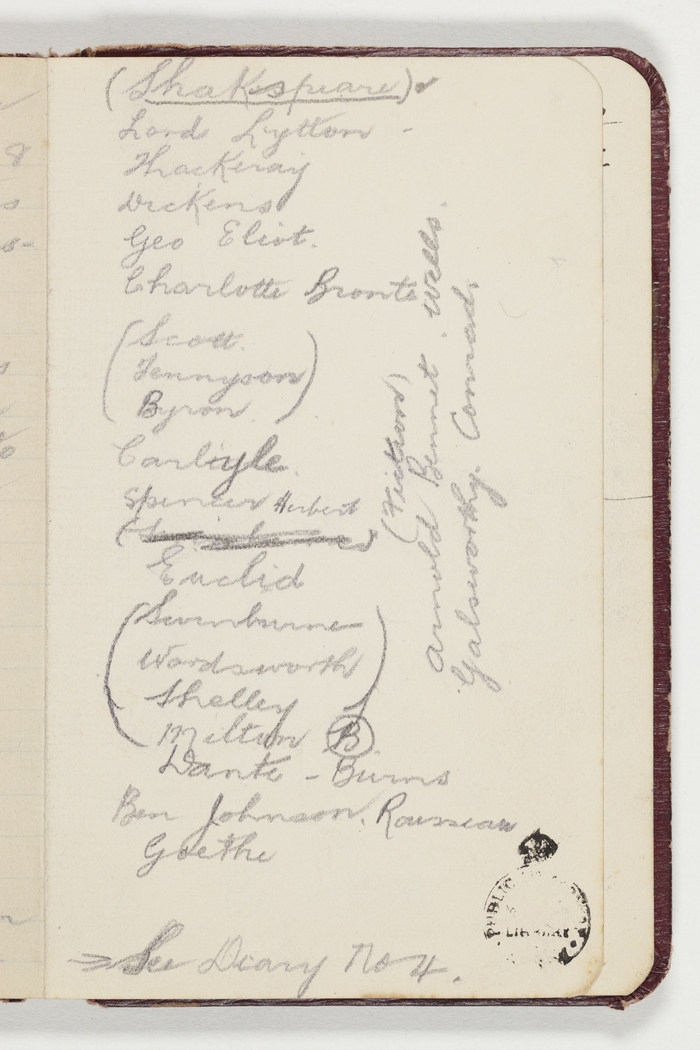 (Shakspeare)
Lord Lytton -
Thackeray
Dickens
Geo Eliot.
Charlotte Bronte
(Scott.
Tennyson
Byron.)
Carlyle.
Spencer Herbert
Euclid
(Swinburne
Wordsworth
Shelley
Milton) B
Dante - Burns
Ben Johnson. Rousseau
Goethe
See Diary No 4.
(Fiction)
Arnold Bennet. Wells.
Galsworthy. Conrad.
PUBLIC
LIBRARY